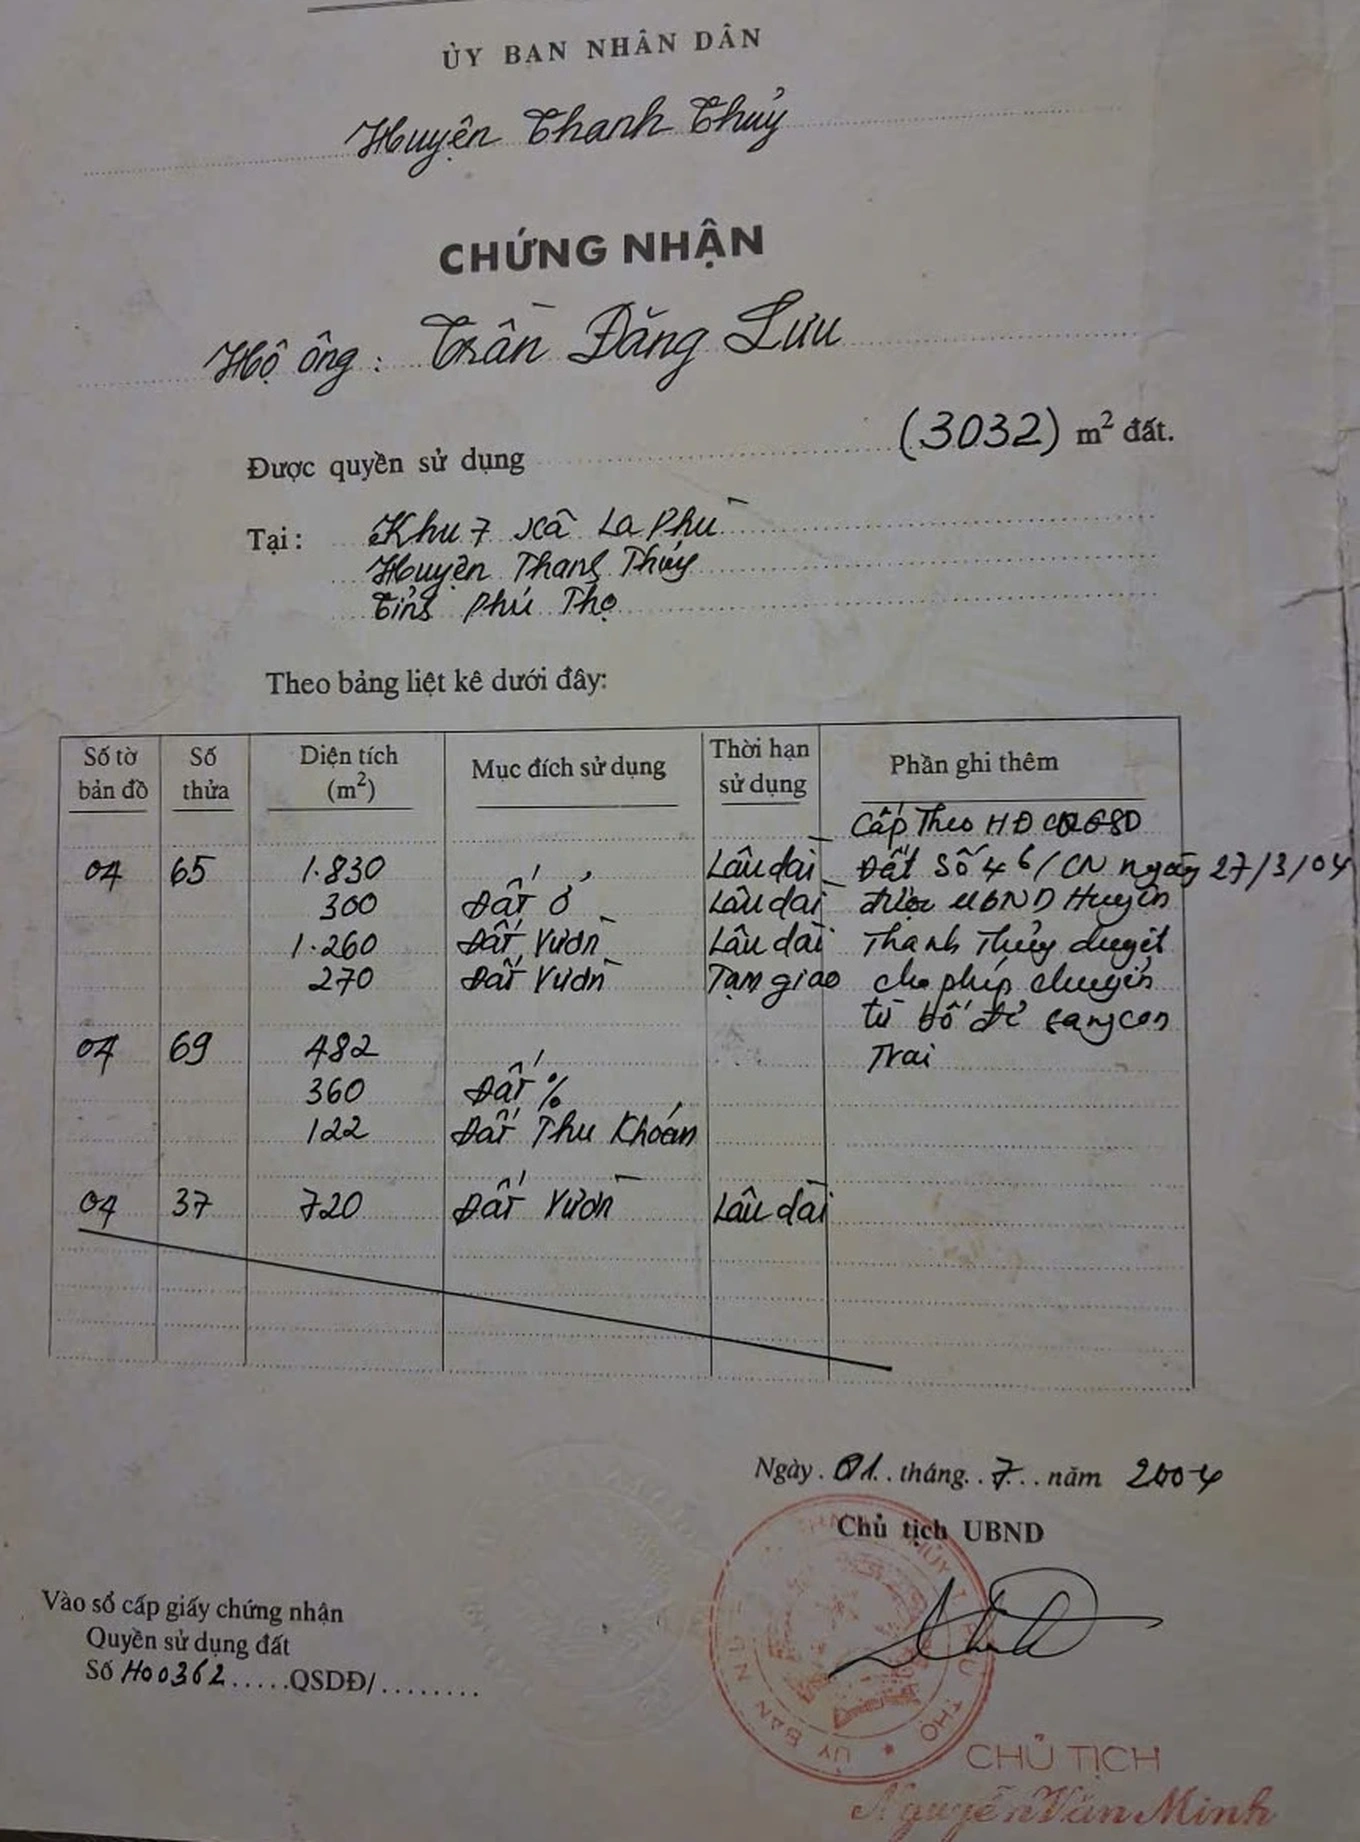 ỦY BAN NHÂN DÂN
Huyện Thanh Thủy
CHỨNG NHẬN
Hộ ông: Trần Đăng Lưu
Được quyền sử dụng (3032) m² đất.
Tại: Khu 7 xã La Phù
Huyện Thanh Thủy
Tỉnh Phú Thọ
Theo bảng liệt kê dưới đây:
Số tờ bản đồ Số thửa Diện tích (m²) Mục đích sử dụng Thời hạn sử dụng Phần ghi thêm
Cấp Theo HĐ CQSD
04 65 1.830 Lâu dài Đất Số 46/CN ngày 27/3/04
300 Đất ở Lâu dài được UBND Huyện
1.260 Đất Vườn Lâu dài Thanh Thủy duyệt
270 Đất Vườn Tạm giao cho phép chuyển
từ bố đẻ sang con
04 69 482 Trai
360 Đất %
122 Đất Thu Khoán
04 37 720 Đất Vườn Lâu dài
Ngày 01 tháng 7 năm 2004
Chủ tịch UBND
Vào sổ cấp giấy chứng nhận
Quyền sử dụng đất
Số H00362.....QSDĐ/........
ỦY BAN N THỦY T PHÚ THỌ
CHỦ TỊCH
Nguyễn Văn Minh